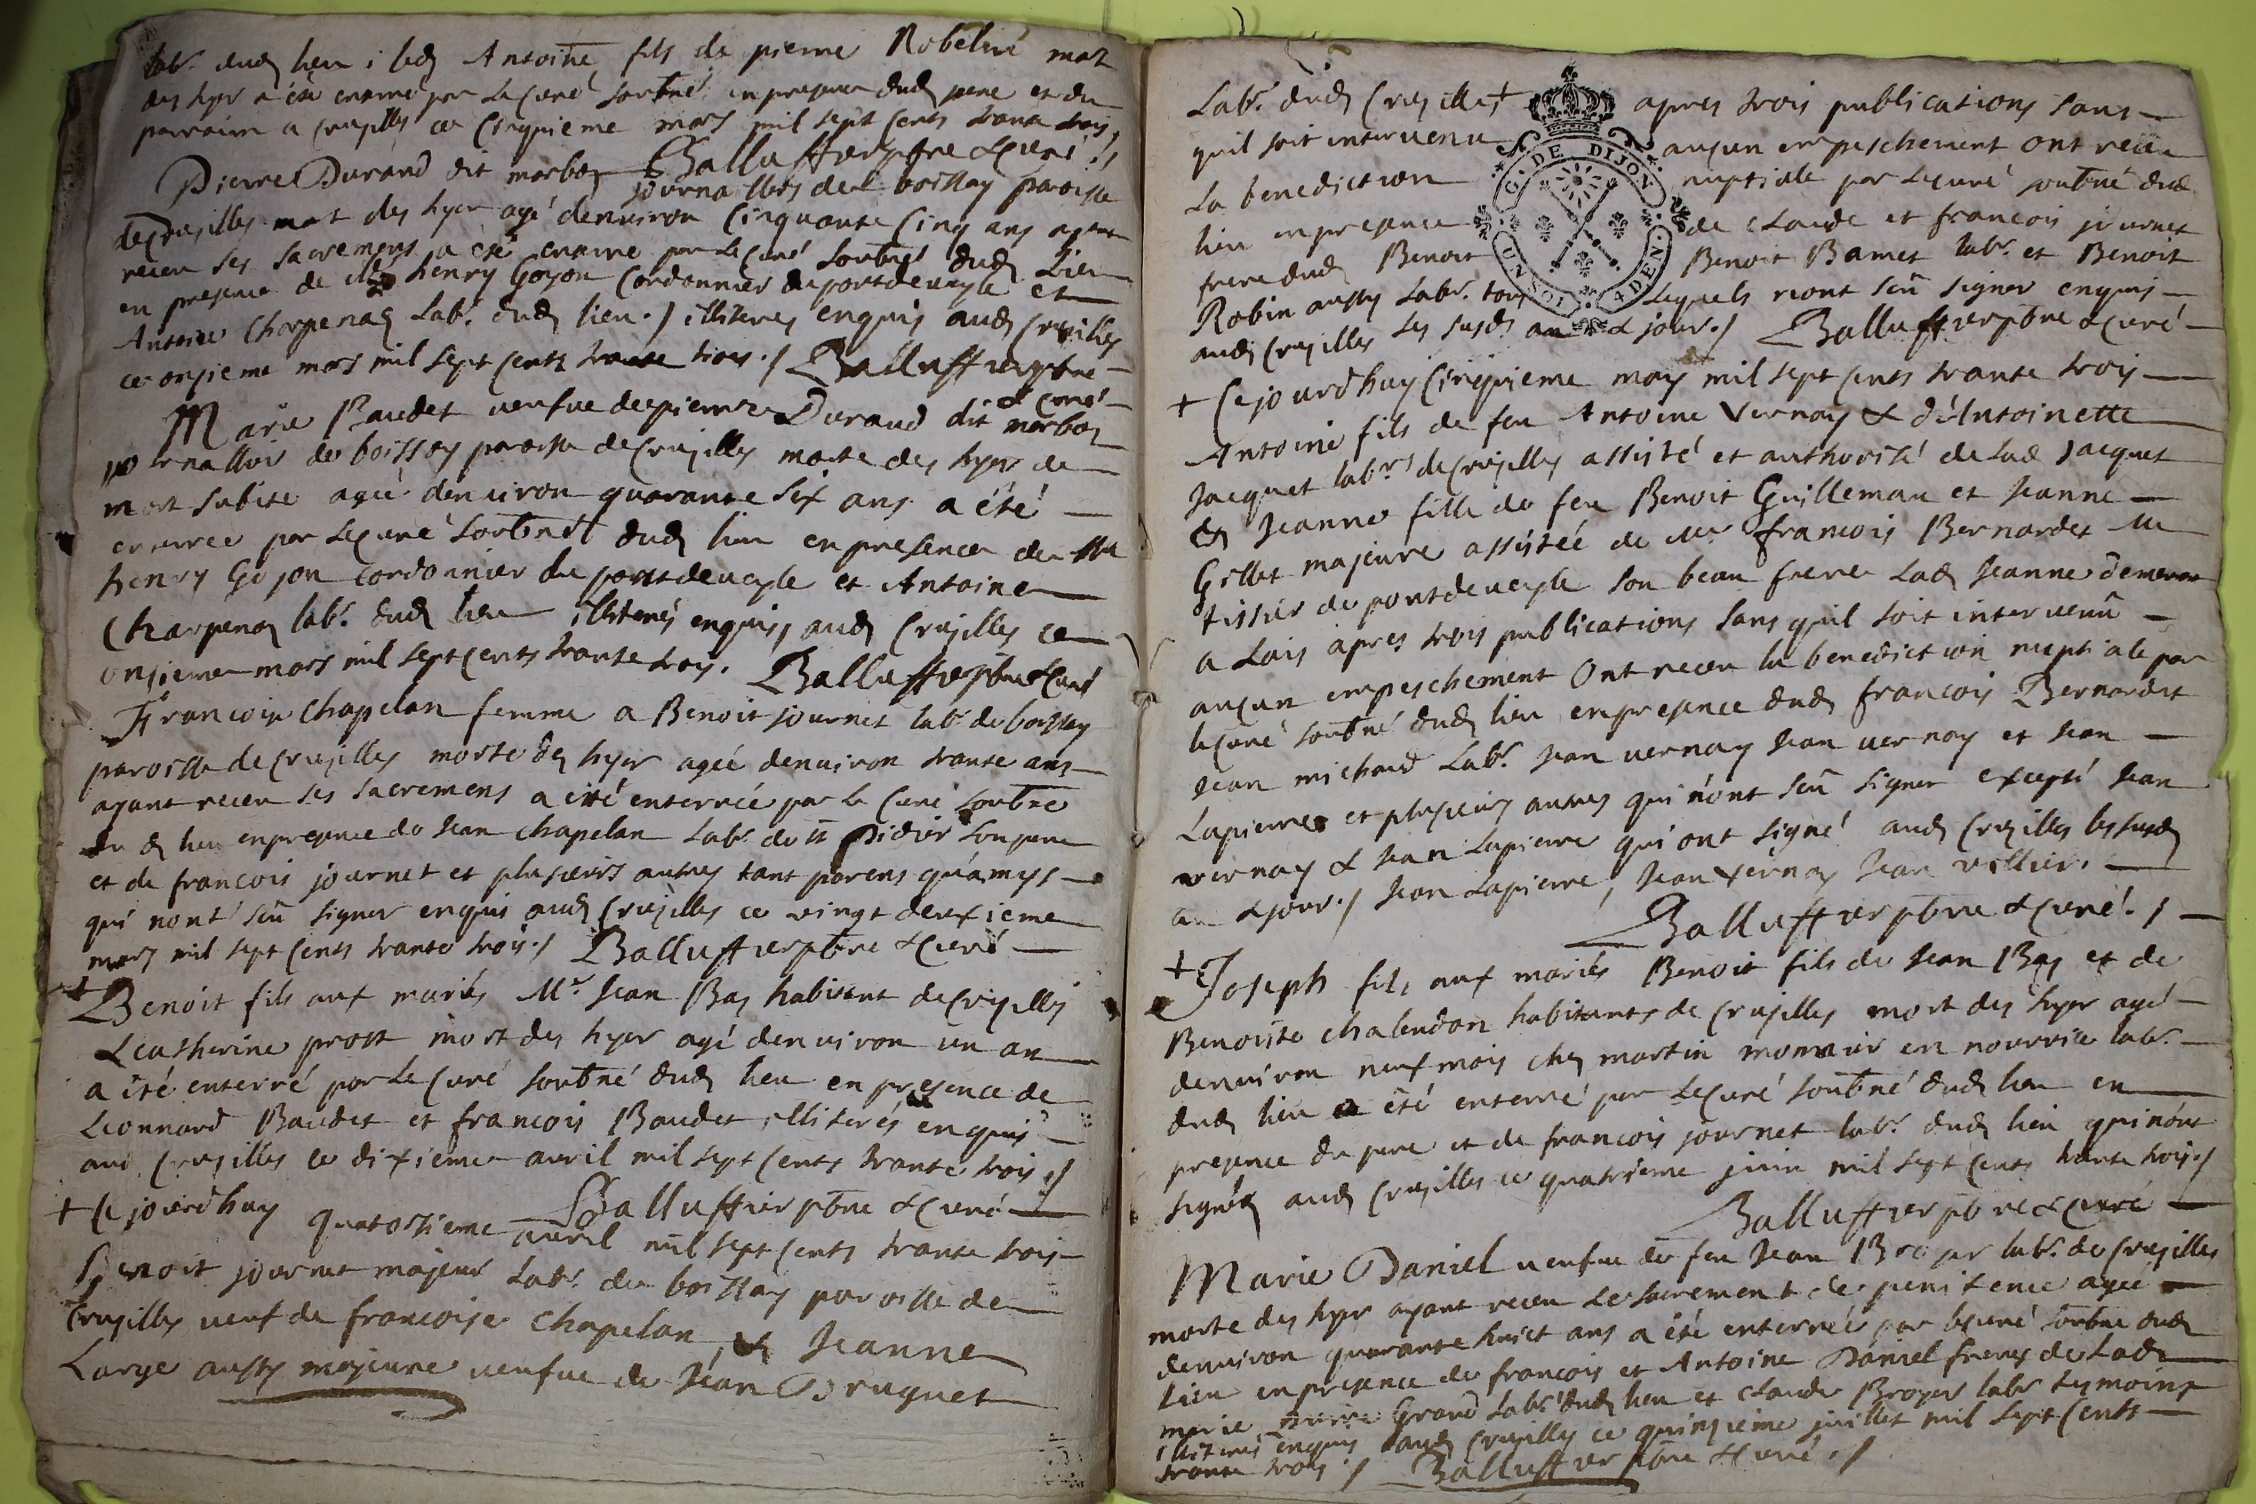 labr. dudt lieu ; ledt Antoine fils de pierre Robelin mort
des hyer a été enterré par Le Curé soubné en presence dudt pere et du
parrain a Crusilles ce Cinquieme mars mil sept Cents trante trois,
Balluffier pbre & Curé ./
Pierre Durand dit marbot journallier de boissay paroisse
de Crusilles mort des hyer agé denuiron Cinquante Cinq ans ayant
receu ses sacremens a été enterré par Le Curé soubné dudt Lieu
en presence de henry Gojon Cordonnier du pontdeueyle et
Antoine Charpenay Labr. dudt lieu ./ illiteres enquis audt Crusilles
ce onzieme mars mil sept Cents trante trois ./ Balluffier pbre
& Curé
Marie Baudet ueufue de pierre Durand dit marbot
journallier de boissay paroisse de Crusilles morte des hyer de
mort subite agée denuiron quarante six ans a été
enterrée par Le Curé soubné dudt lieu en presence de
henry Gojon Cordonnier du pontdeueyle et Antoine
Charpenay labr. dudt lieu illiterés enquis, audt Crusilles ce
onzieme mars mil sept Cents trante trois. Balluffier pbre & Curé
Francoise Chapelan femme a Benoit journet labr. de boissay
paroisse de Crusilles morte des hyer agée denuiron trante ans
ayant receu ses sacremens a été enterrée par le Curé soubné
du dt lieu en presence de Jean Chapelan Labr. de st Didier son pere
et de francois journet et plusieurs autres tant parens qu'amys
qui n'ont sçû signer enquis audt Crusilles ce vingt deuxieme
mars mil sept Cents trante trois ./ Balluffier pbre & Curé
+ Benoit fils aux mariés Mr. Jean Bas habitant de Crusilles
& Catherine prost mort des hyer agé denuiron un an
a été enterré par Le Curé soubné dudt lieu en presence de
Leonnard Baudet et francois Baudet illiterés enquis
audt Crusilles ce dixieme auril mil sept Cents trante trois ./
Balluffier pbre & Curé
+ Ce jourdhuy quatorzieme auril mil sept Cents trante trois
Benoit journet majeur Labr. de boissay paroisse de
Crusilles ueuf de francoise Chapelan, et Jeanne
Large aussy majeure ueufue de Jean Druguet
Labr. dudt Crusilles + apres trois publications sans
qu'il soit interuenu aucun empeschement ont receu
La benediction nuptiale par Le Curé soubné dudt
lieu en presence de Claude et francois journet
frere dudt Benoit Benoit Bamet labr. et Benoit
Robin aussy Labr. tous Lequels n'ont sçû signer enquis
audt Crusilles Les susdts an & jour ./ Balluffier pbre & Curé
G. DE DIJON
UN SOL 4 DEN.
+ Ce jourdhuy Cinquieme may mil sept Cents trante trois
Antoine fils de feu Antoine Vernay & d'Antoinette
Jacquet labrs de Crusilles assisté et authorisé de Ladt Jacquet
et Jeanne fille de feu Benoit Guillemau et Jeanne
Gillet majeure assistée de Mr francois Bernardet Me
tissier de pontdeueyle son beau frere Ladt Jeanne demeurant
a Lais apres trois publications sans qu'il soit interuenû
aucun empeschement Ont receu la benediction nuptiale par
le Curé soubné dudt lieu en presence dudt francois Bernardet
Jean michaud Labr. Jean uernay Jean uernay et Jean
Lapierre et plusieurs autres qui n'ont sçû signer excepté Jean
vernay & Jean Lapierre qui ont signé audt Crusilles les susdts
an & jour ./ Jean Lapierre, Jean Vernay Jean
Balluffier pbre & Curé ./
+ Joseph fils aux mariés Benoit fils de Jean Bas et de
Benoiste Chalendon habitants de Crusilles mort des hyer agé
denuiron neuf mois chez martin monnier en nourrice labr.
dudt lieu a été enterré par Le Curé soubné dudt lieu en
presence du pere et de francois journet labr. dudt lieu qui n'ont
signés audt Crusilles ce quatrieme juin mil sept Cents trante trois ./
Balluffier pbre & Curé
Marie Daniel ueufue de feu Jean Broyer labr. de Crusilles
morte des hyer ayant receu Le sacrement de penitence agée
denuiron quarante huict ans a été enterrée par le Curé soubné dudt
Lieu en presence de francois et Antoine Daniel freres de Ladt
marie Grand Labr. dudt lieu et Claude Broyer labr. tesmoins
illiteres enquis audt Crusilles ce quinzieme juillet mil sept Cents
trante trois ./ Balluffier pbre & Curé ./